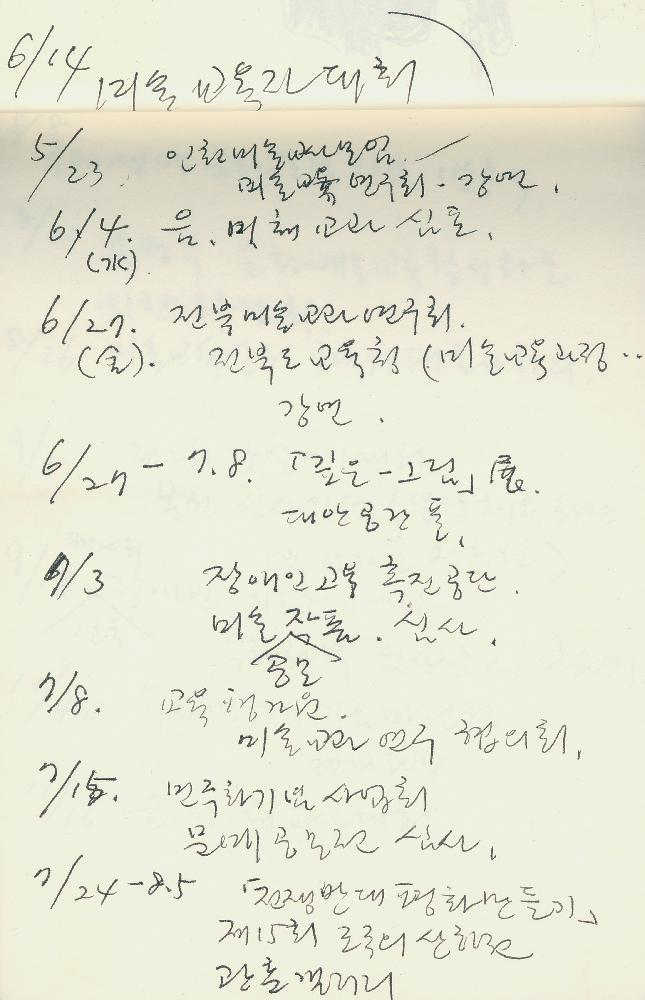 6/14 미술교육과대회
5/23. 인천미술교사모임.
미술교육연구회 - 강연.
6/4. 음, 미, 체 교과 심포,
(水).
6/27. 전북미술교과연구회.
(金). 전북도교육청 (미술교육과정 ··
강연.
6/27 - 7.8. 「깊은-그림」展.
대안공간 풀,
7/3 장애인고용촉진공단.
미술작품. 심사.
공모
7/8. 교육평가원.
미술교과 연구 협의회,
7/15. 민주화기념사업회
문예공모전 심사,
7/24-8.5 「전쟁반대 평화만들기」
제15회 조국의산하전
관훈갤러리